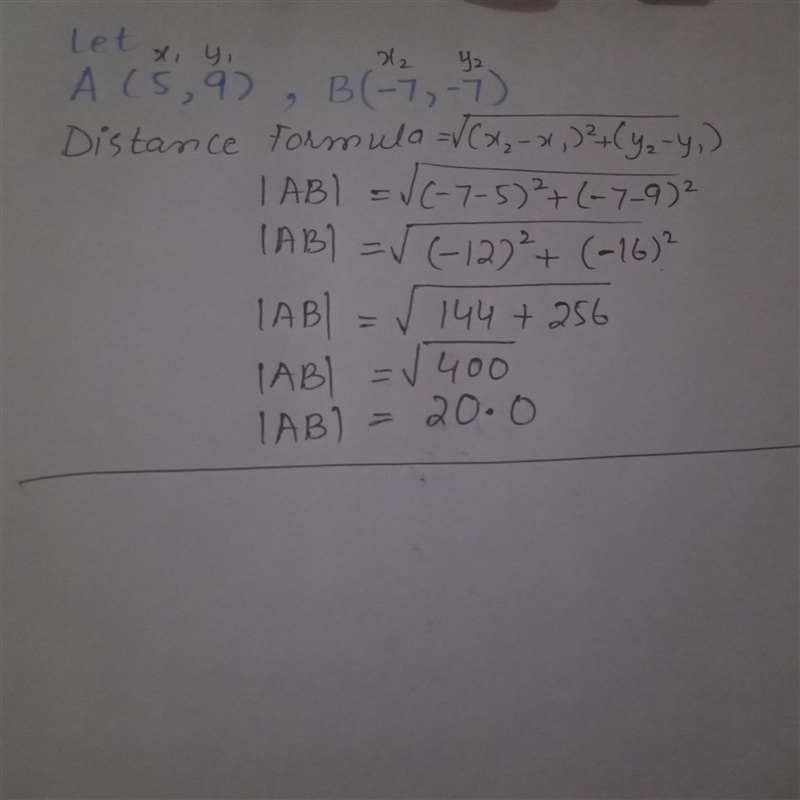 Let
x₁ y₁ x₂ y₂
A (5,9) , B(-7,-7)
Distance Formula = √(x₂-x₁)²+(y₂-y₁)
|AB| = √(-7-5)²+(-7-9)²
|AB| = √(-12)²+ (-16)²
|AB| = √144 + 256
|AB| = √400
|AB| = 20.0